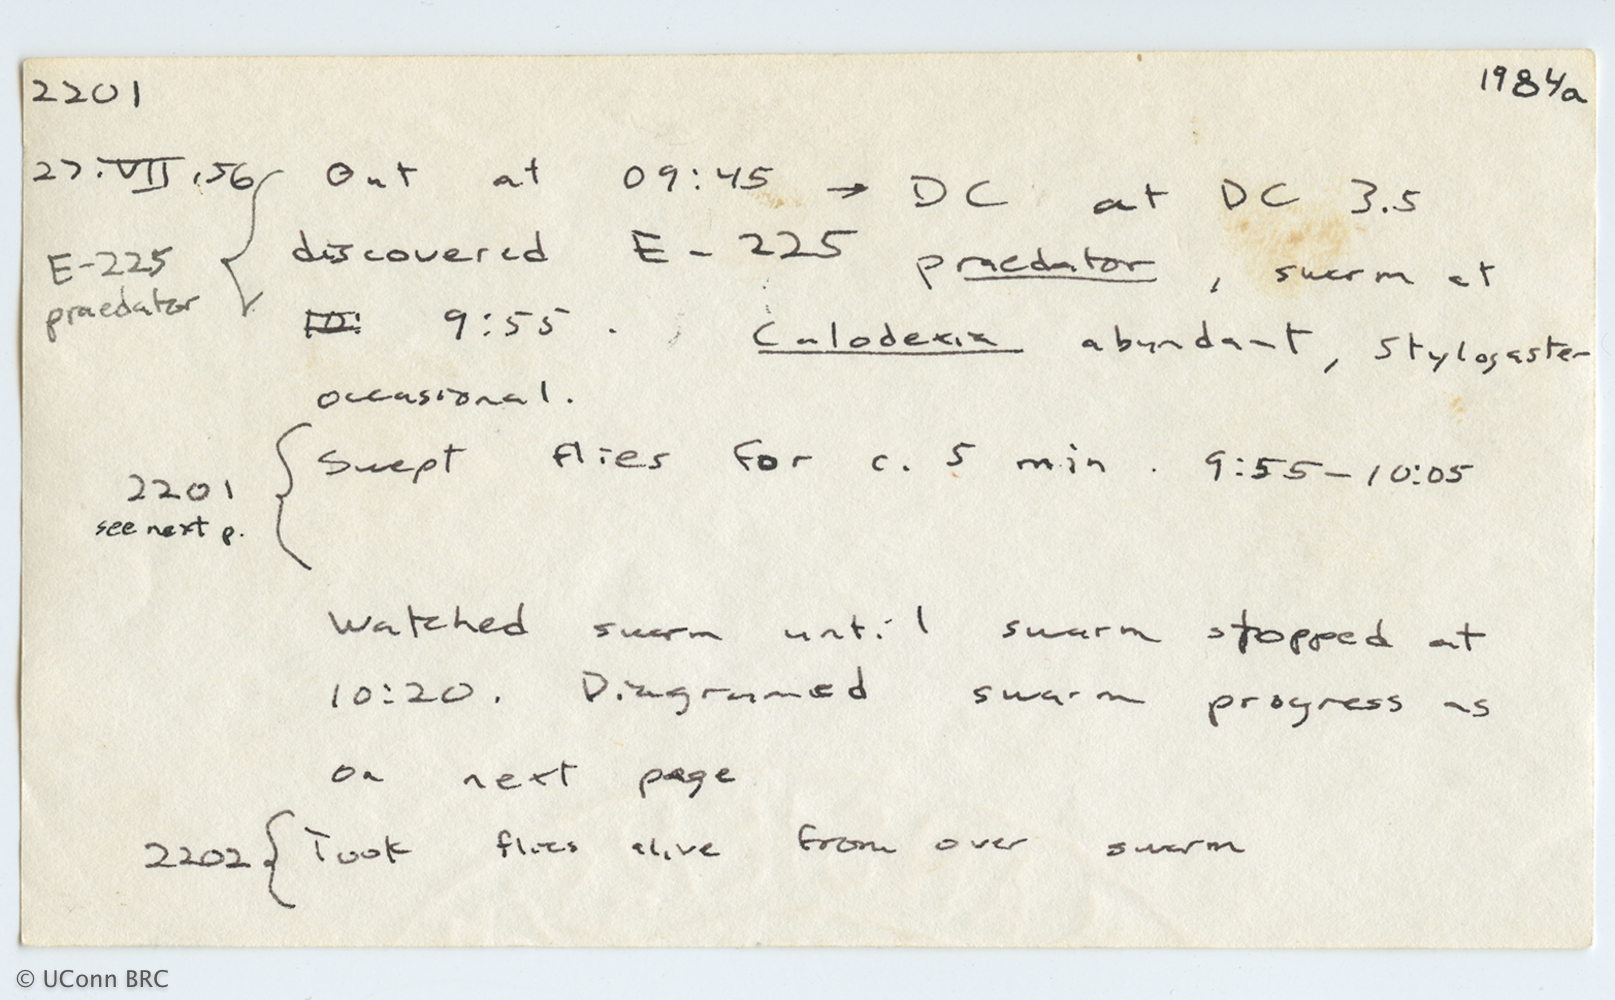 2201 1984a
27.VII.56 Out at 09:45 → DC at DC 3.5
E-225 discovered E-225 praedator, swarm at
praedator 10: 9:55. Calodexia abundant, Stylogaster
occasional.
Swept flies for c. 5 min. 9:55-10:05
2201
see next p.
Watched swarm until swarm stopped at
10:20. Diagrammed swarm progress as
on next page
2202 Took flies alive from over swarm
© UConn BRC